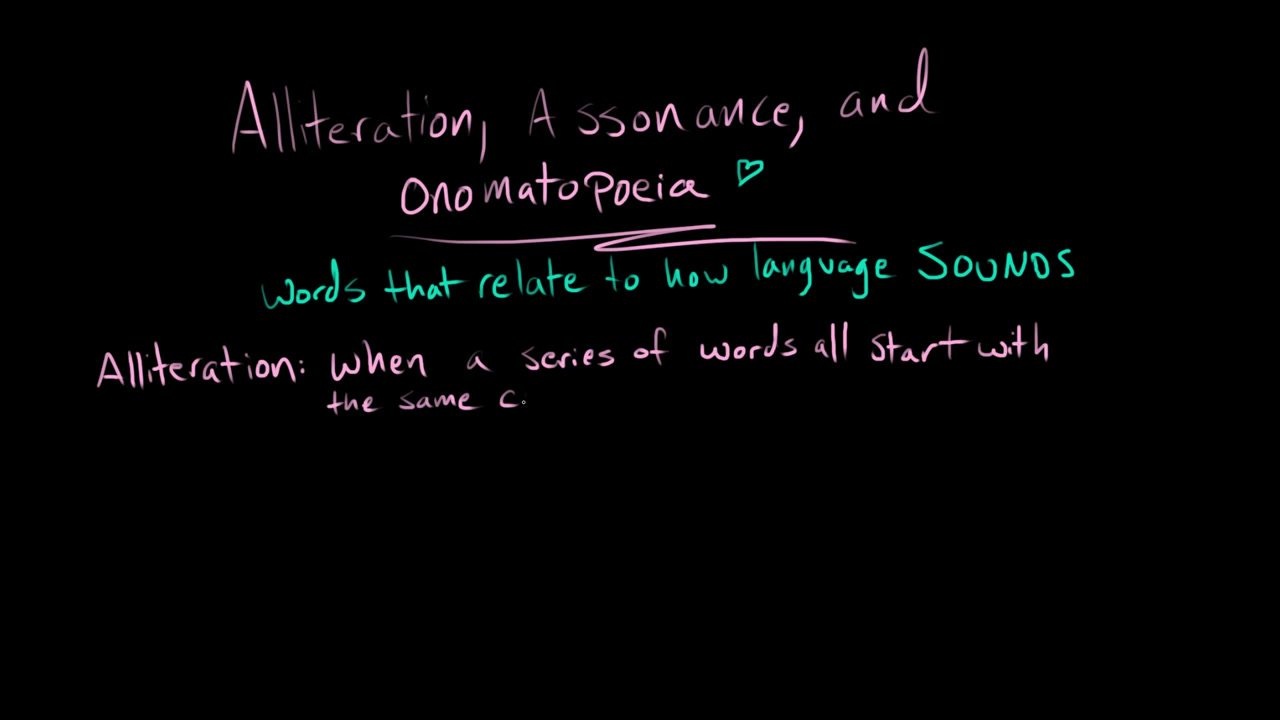 Alliteration, Assonance, and
Onomatopoeia
words that relate to how language SOUNDS
Alliteration: when a series of words all start with
the same c